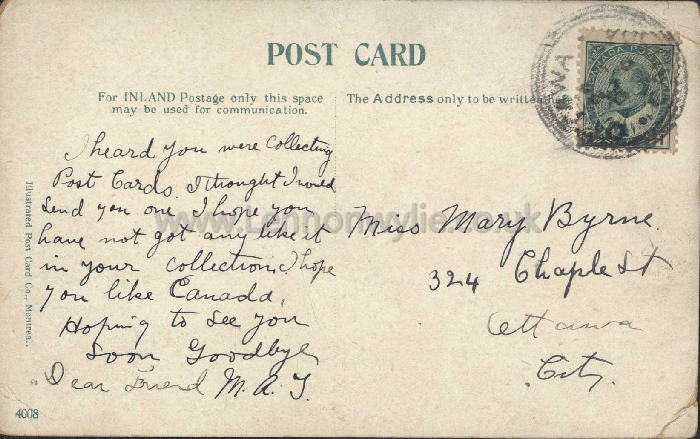 POST CARD
For INLAND Postage only this space
may be used for communication.
The Address only to be written here
I heard you were Collecting
Post Cards. I thought I would
Send you one I hope you
have not got any like it
in your collection. I hope
you like Canada.
Hoping to see you
Soon Goodbye
Dear Friend M. A. J.
Miss Mary Byrne.
324 Chaple St
Ottawa
City.
Illustrated Post Card Co., Montreal.
4008
www.Lennonwylie.co.uk
CANADA POSTAGE